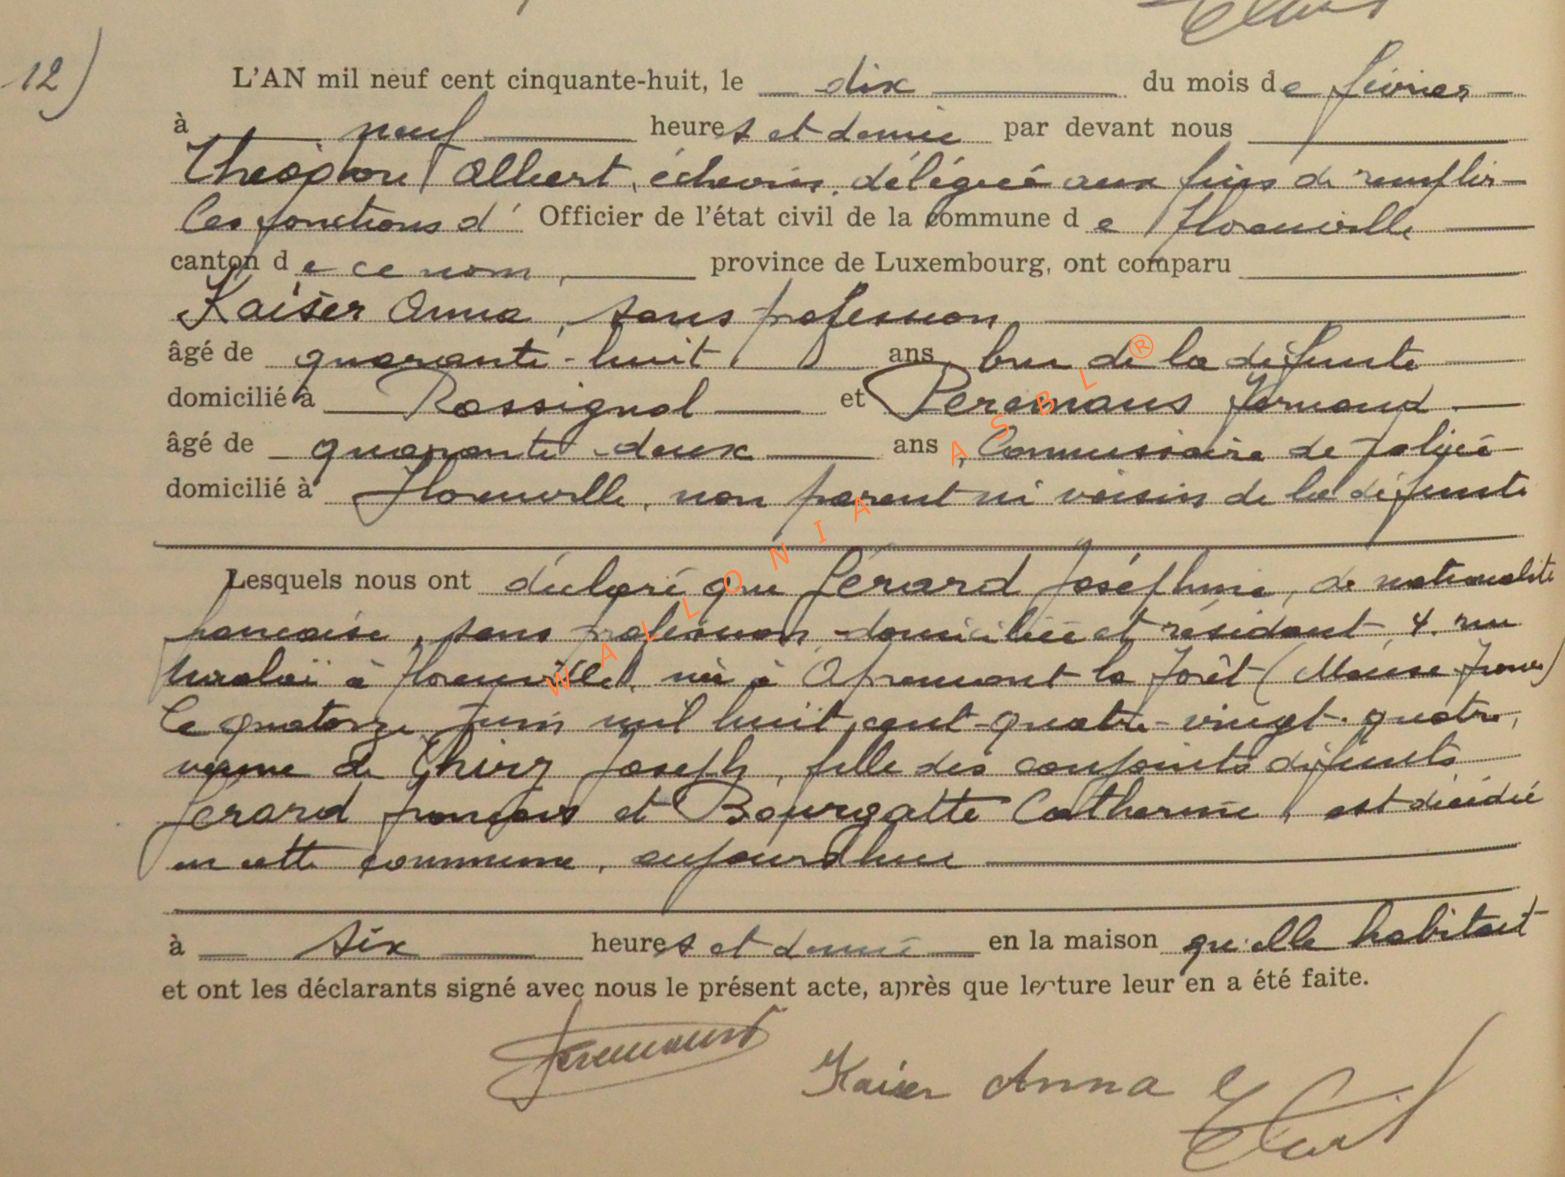 12)
L'AN mil neuf cent cinquante-huit, le dix du mois de février
à neuf heures et demie par devant nous
Albert, échevin, délégué aux fins de remplir
les fonctions d' Officier de l'état civil de la commune de Florenville
canton de ce nom, province de Luxembourg, ont comparu
Kaiser Anna, sans profession
âgé de quarante-huit ans bru de la défunte
domicilié à Rossignol et Peremans Fernand
âgé de quarante-deux ans, Commissaire de police
domicilié à Florenville, non parent ni voisin de la défunte
Lesquels nous ont déclaré que Gérard Joséphine, de nationalité
française, sans profession, domiciliée et résidant 4, rue
à Florenville, née à Apremont la Forêt (Meuse France)
le quatorze juin mil huit cent quatre-vingt-quatre,
veuve de Thiry Joseph, fille des conjoints défunts
Gérard François et Bourgatte Catherine, est décédée
en cette commune, aujourd'hui
à six heures et demie en la maison qu'elle habitait
et ont les déclarants signé avec nous le présent acte, après que lecture leur en a été faite.
Kaiser Anna
WALLONIA ASBL ®